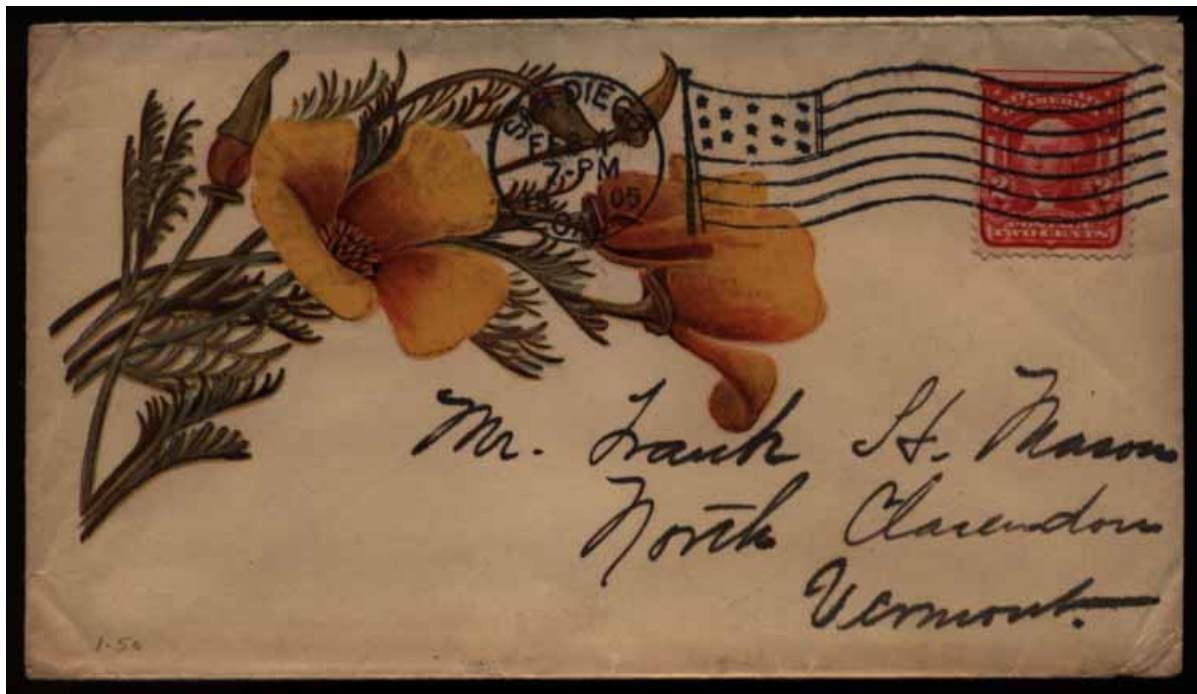 SAN DIEGO
FEB 1
7-PM
05
CAL.
AMERICA
2 2
POSTAGE
TWO CENTS
Mr. Frank H. Mason
North Clarendon
Vermont.
1-50